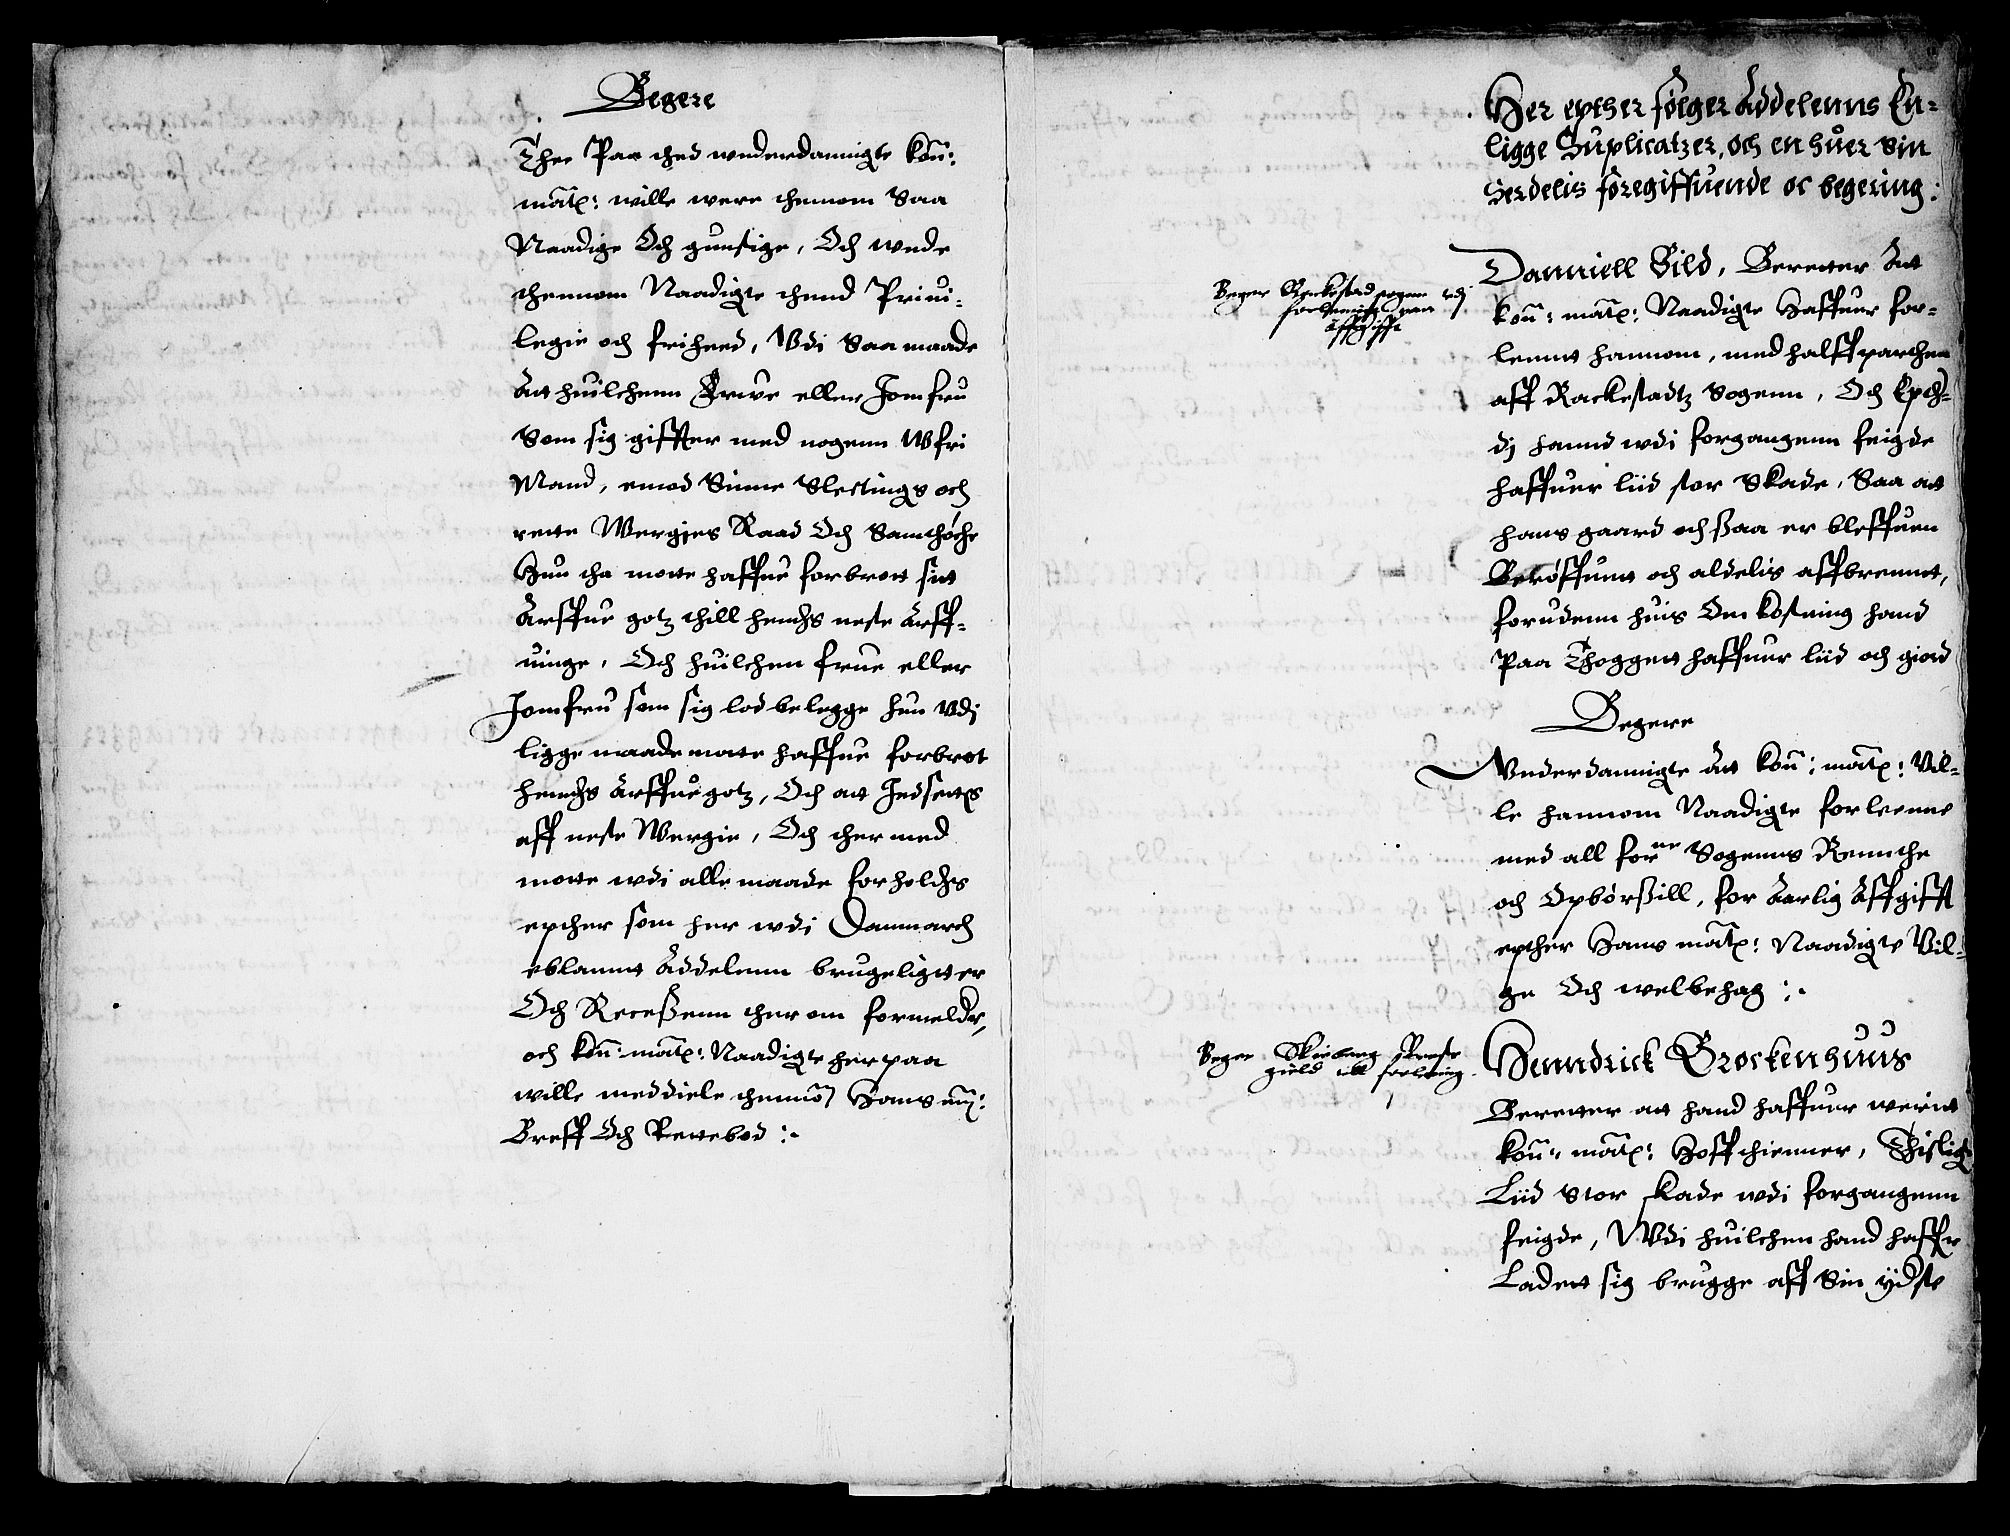 Begere
Thee Paa thed wnderdannigte kon:
matz: wille were thennom Saa
Naadige Och gunstige, Och wnde
thennom Naadigte thend Priui-
legie och friheed, Vdi Saa maade
Att huilchenn Frwe eller Jomfru
Som sig giffter med nogenn Wfri
Mand, emod Sinne Slectings och
rette Wergies Raad Och Samthöche
Hun tha motte haffue forbrott sitt
Arffue gotz thill hendis neste Arff-
uinge, Och huilchen frue eller
Jomfru som sig lod belegge hun Vdj
ligge maade motte haffue forbrot
hendis Arffue gotz, Och att Jndsettis
aff neste Wergie, Och ther med
motte wdi alle maade forholdis
epther som her wdi Danmarch
eblannt Addelenn brugeligt er
Och Receßenn ther om formelder,
och kon: matz: Naadigte her paa
wille meddiele thennom Hans mtz:
Breff Och Rettebod :-
Her epther følger Addelenns En-
ligge Suplicatzer, och en huer Sin
Serdelis foregiffuende oc begering:
Beger Rackestad sogen vdj
forlening paa
Affgifft
Danniell Bild, Beretter Att
kon: matz: Naadigte Haffuer for-
lennt hannom, med halff parthen
aff Rackestadtz Sogenn, Och Epth-
dj hannd wdi forgangenn feigde
haffuer liid stor Skade, Saa att
hans gaard och ßaa er bleffuen
Berøffuett och aldelis affbrennt,
forudenn huis Omkostning hand
Paa Thoggett haffuer liid och giord
Begere
Vnderdannigte Att kon: matz: Vil-
le hannom Naadigte forleenne
med all forne Sogenns Rennthe
och Opbørßill, for Aarlig Affgifft
epther Hans matz: Naadigte Vil-
ge Och welbehag :-
Beger Skieberg Preste
gield vdi forlening.
Henndrick Brockenhuus
Beretter att hand haffuer werit
kon: matz: Hoff thienner, Thisligt
Liid Stor skade wdi forgangenn
feigde, Wdi huilchen hand haffr
Ladett sig brugge aff Sin ÿdste